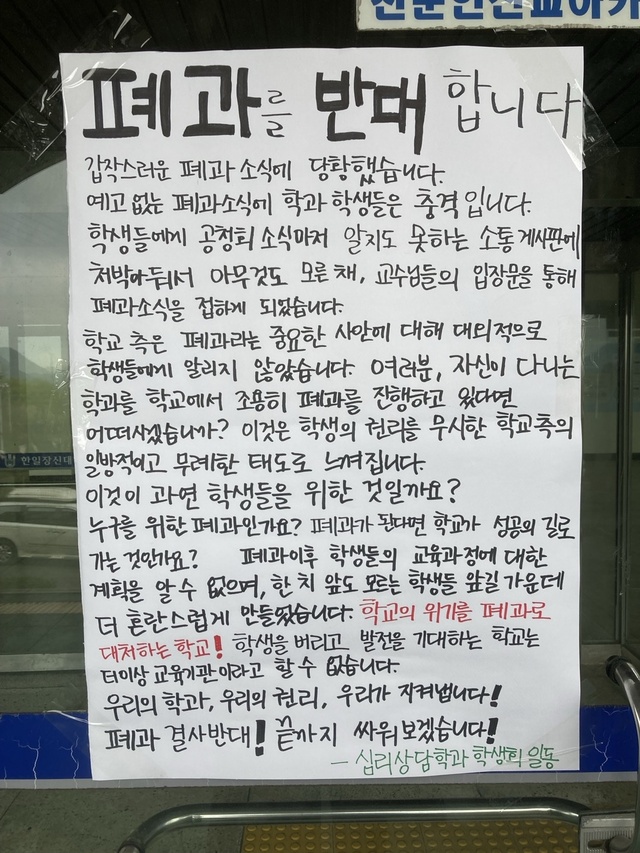 전문인선교아카
폐과를 반대 합니다
갑작스러운 폐과 소식에 당황했습니다.
예고 없는 폐과소식에 학과 학생들은 충격입니다.
학생들에게 공청회 소식마저 알지도 못하는 소통게시판에
처박아둬서 아무것도 모른 채, 교수님들의 입장문을 통해
폐과소식을 접하게 되었습니다.
학교 측은 폐과라는 중요한 사안에 대해 대외적으로
학생들에게 알리지 않았습니다. 여러분, 자신이 다니는
학과를 학교에서 조용히 폐과를 진행하고 있다면
어떠시겠습니까? 이것은 학생의 권리를 무시한 학교측의
일방적이고 무례한 태도로 느껴집니다.
이것이 과연 학생들을 위한 것일까요?
누구를 위한 폐과인가요? 폐과가 된다면 학교가 성공의 길로
가는 것인가요? 폐과이후 학생들의 교육과정에 대한
계획을 알 수 없으며, 한 치 앞도 모르는 학생들 앞길 가운데
더 혼란스럽게 만들었습니다. 학교의 위기를 폐과로
대처하는 학교! 학생을 버리고 발전을 기대하는 학교는
더이상 교육기관이라고 할 수 없습니다.
우리의 학과, 우리의 권리, 우리가 지켜냅니다!
폐과 결사반대! 끝까지 싸워보겠습니다!
- 심리상담학과 학생회 일동
한일장신대